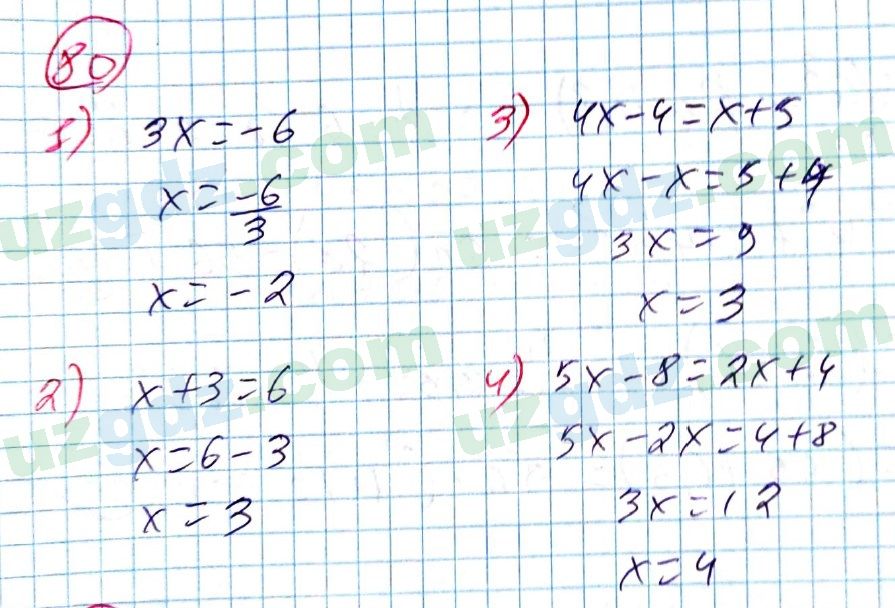 80
1) 3x=-6
x=-6/3
x=-2
2) x+3=6
x=6-3
x=3
3) 4x-4=x+5
4x-x=5+4
3x=9
x=3
4) 5x-8=2x+4
5x-2x=4+8
3x=12
x=4
uzgdz.com
uzgdz.com
uzgdz.com
uzgdz.com